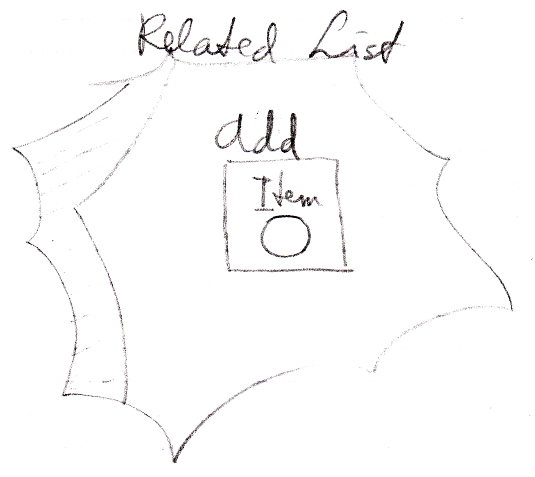 Related List
add
Item